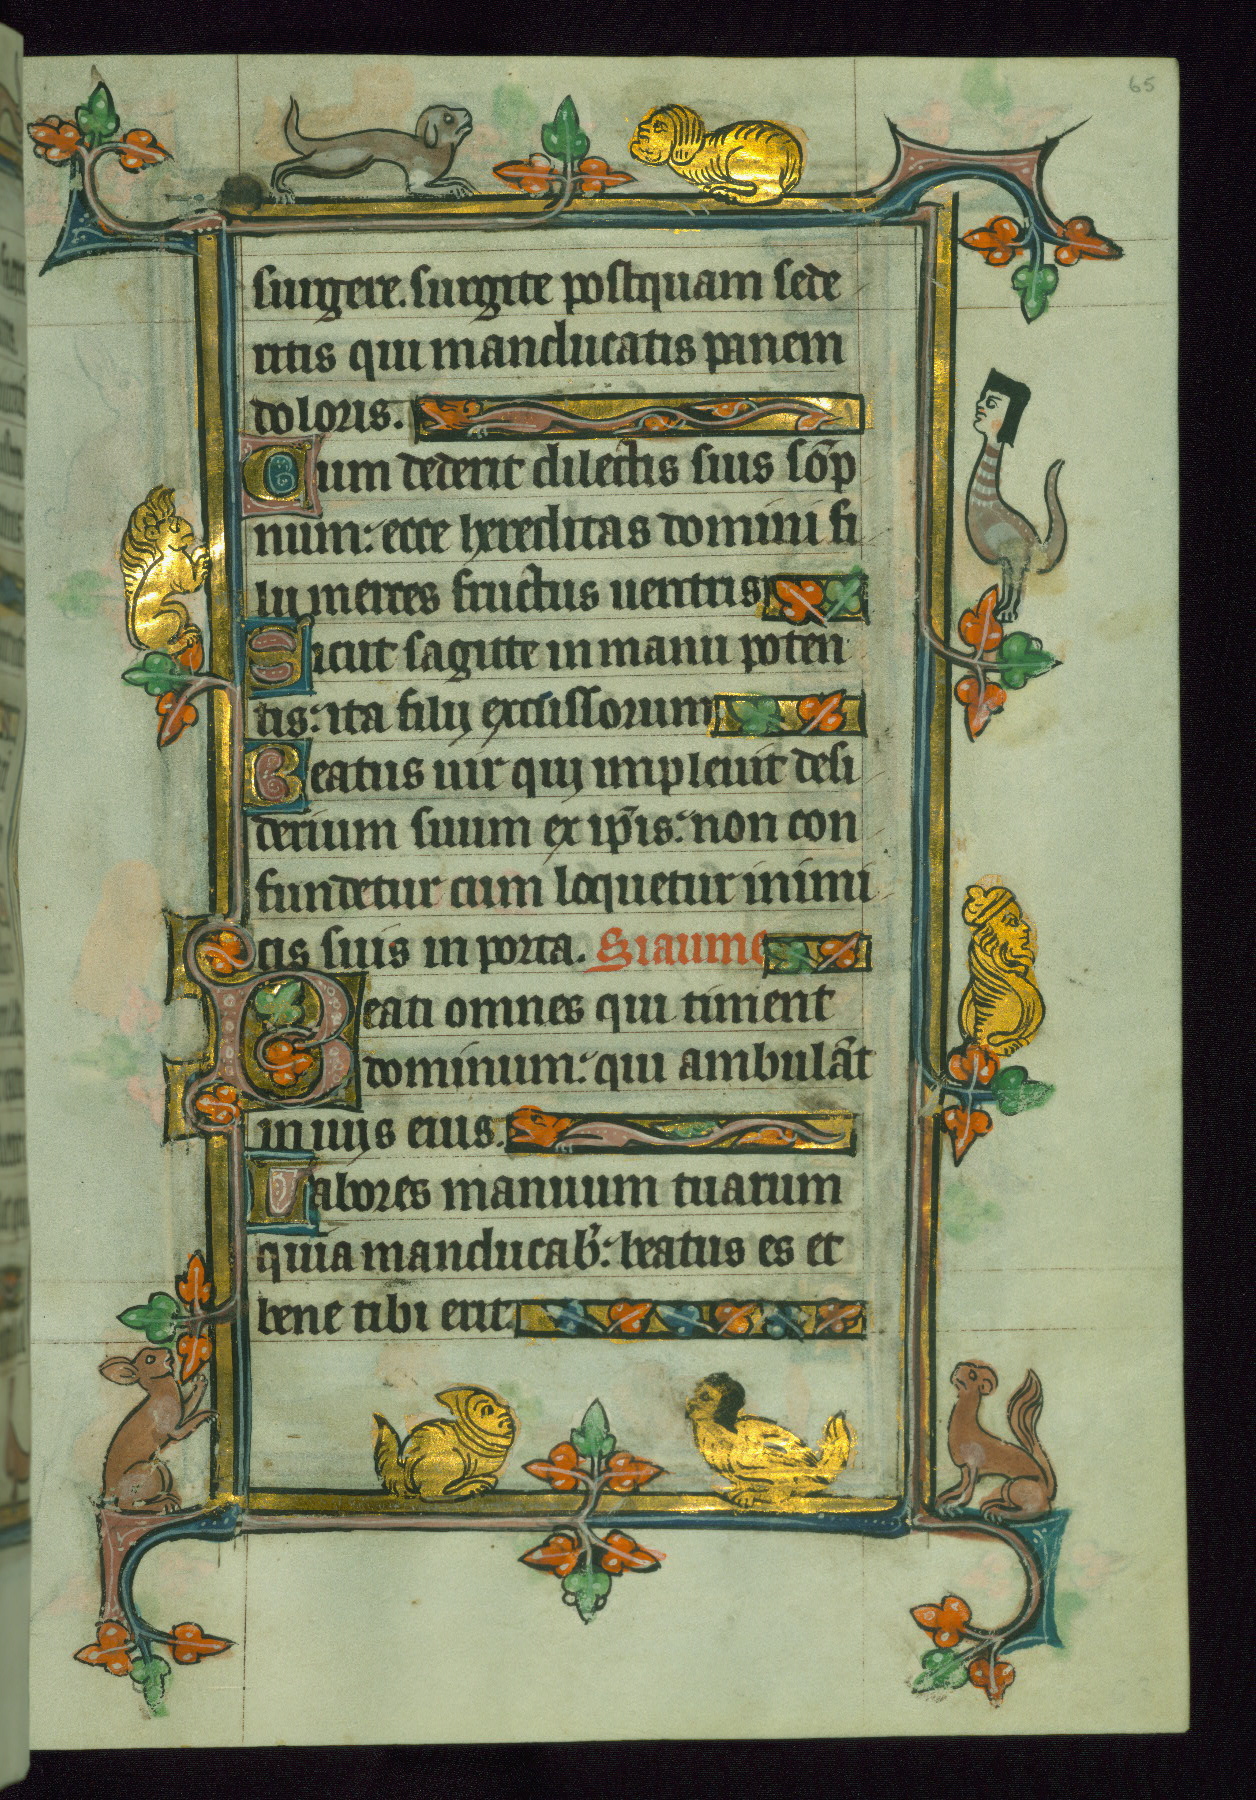 65
surgere. surgite postquam sede
ritis qui manducatis panem
doloris.
Cum dederit dilectis suis so̅p
num: ecce hereditas domini fi
lii merces fructus uentris
Sicut sagitte in manu poten
tis: ita filij excussorum
Beatus uir qui impleuit desi
derium suum ex ip̅is: non con
fundetur cum loquetur inimi
cis suis in porta. Siaume
Beati omnes qui timent
dominum: qui ambula̅t
in uijs eius.
Labores manuum tuarum
quia manducab̾: beatus es et
bene tibi erit.